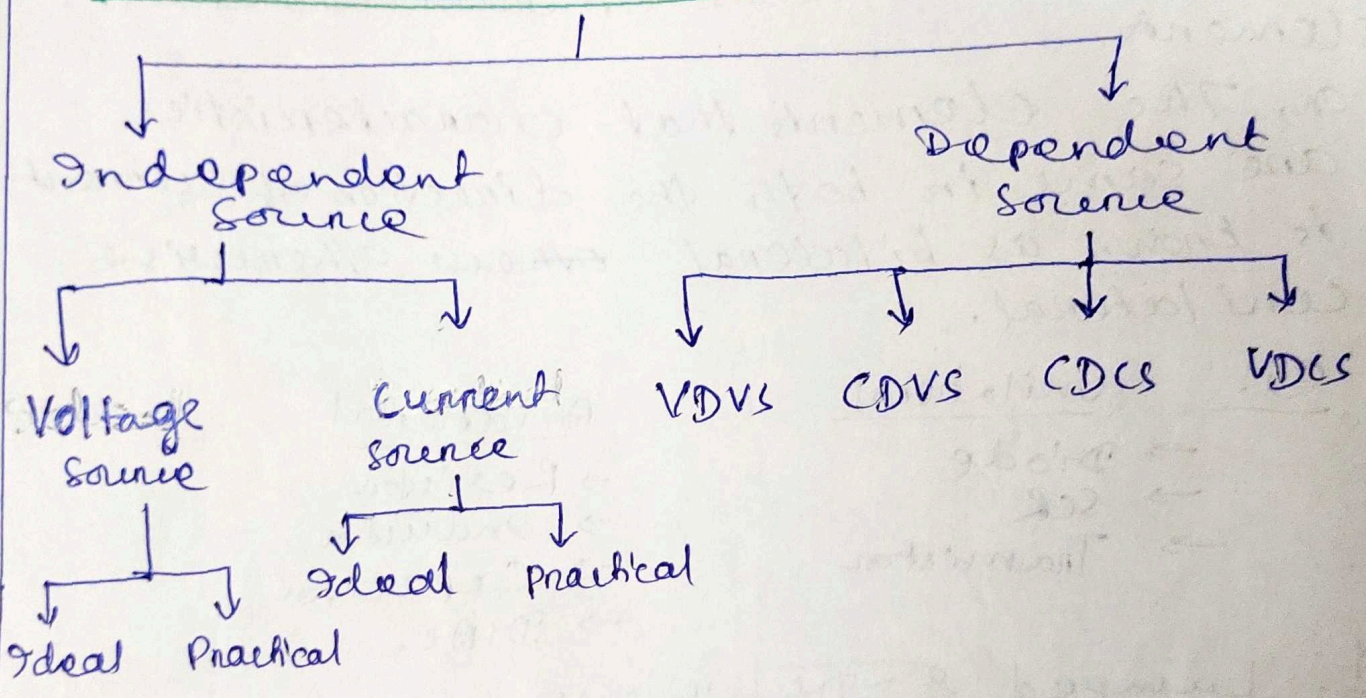 Independent
Source
Dependent
Source
Voltage
Source
Current
Source
VDVS
CDVS
CDCS
VDCS
Ideal
Practical
Ideal
Practical